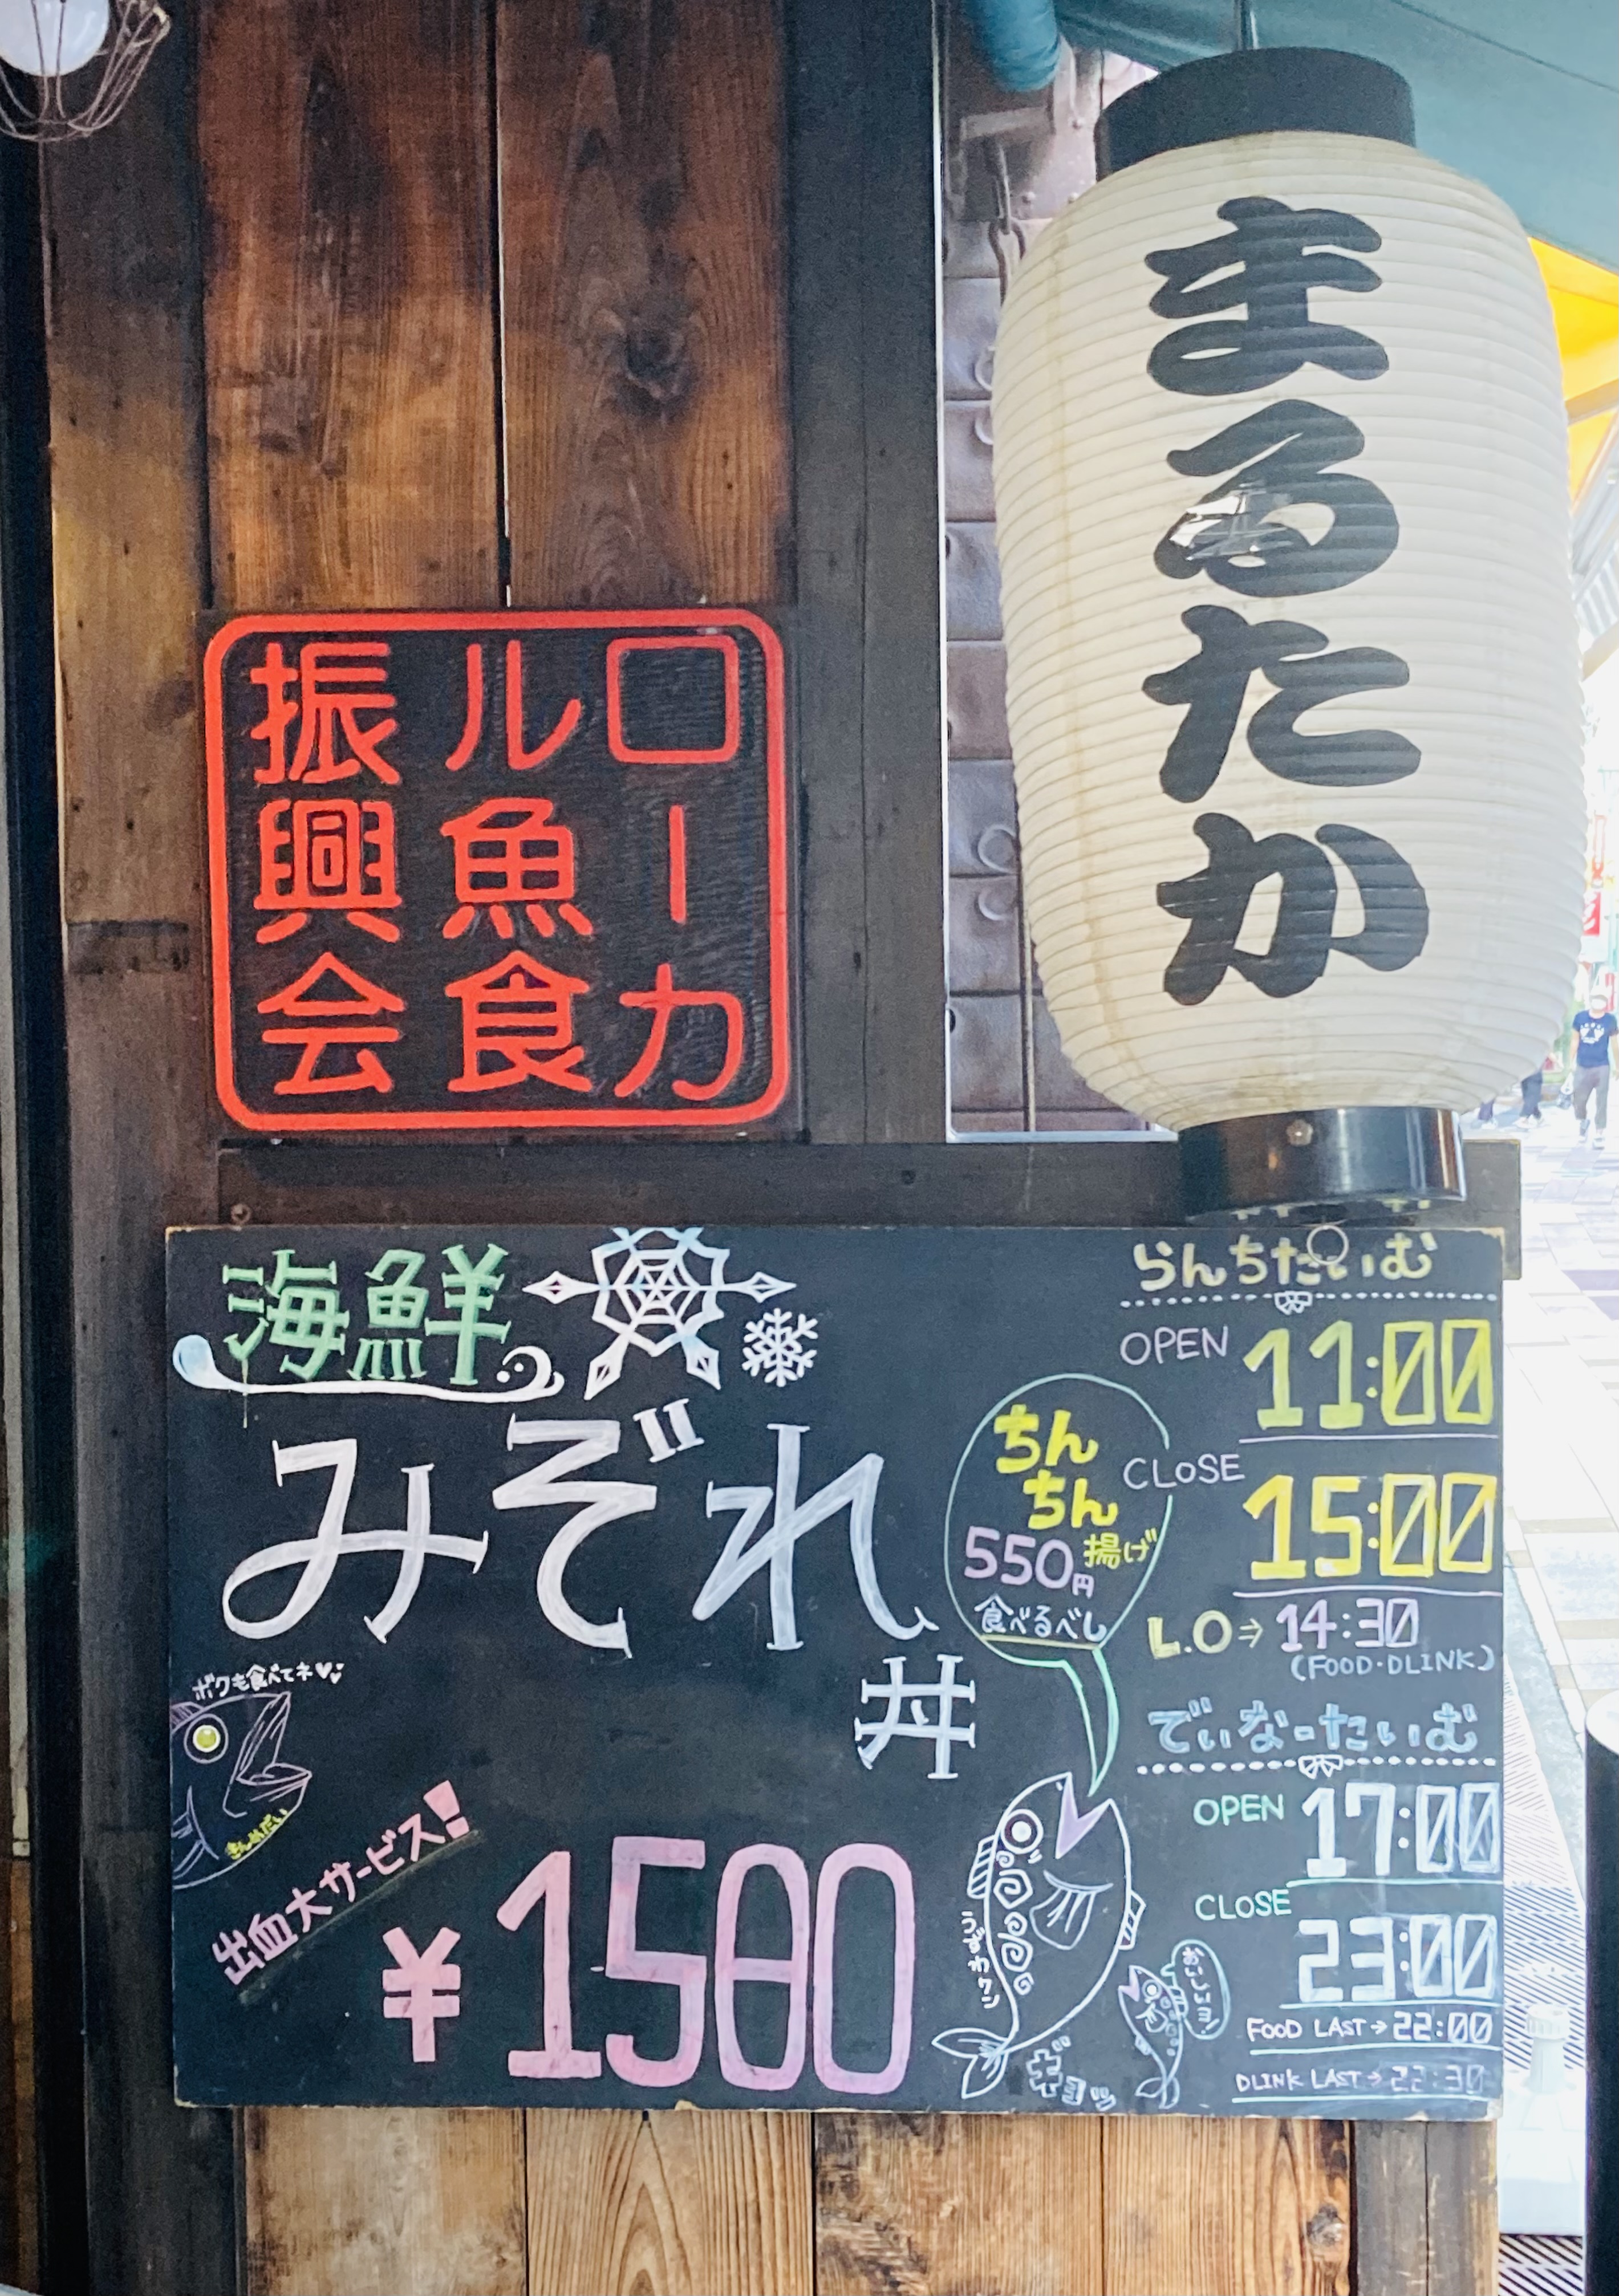 まるたか
ローカ
ル魚食
振興会
海鮮
みぞれ
丼
ボクも食べてネ
きんめだい
出血大サービス!!
¥1500
ちん
ちん
揚げ
550円
食べるべし
ギョッ
らんちたいむ
OPEN 11:00
CLOSE 15:00
L.O⇒14:30
(FOOD・DLINK)
でぃなーたいむ
OPEN 17:00
CLOSE 23:00
FOOD LAST→22:00
DLINK LAST→22:30